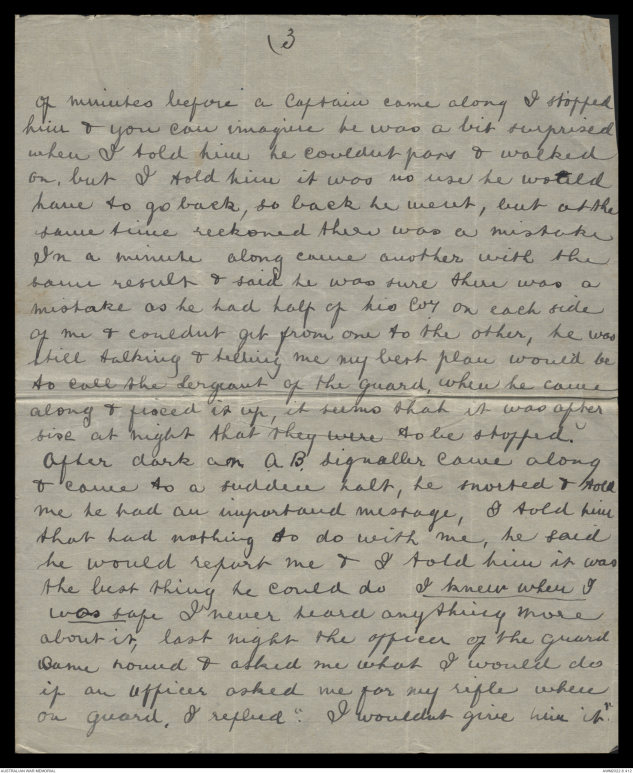 (3
of minutes before a Captain came along I stopped
him & you can imagine he was a bit surprised
when I told him he couldnt pass & walked
on, but I told him it was no use he would
have to go back, so back he went, but at the
same time reckoned there was a mistake
In a minute along came another with the
same result & said he was sure there was a
mistake as he had half of his Coy on each side
of me & couldnt git from one to the other, he was
still talking & telling me my best plan would be
to call the Sergeant of the guard, when he came
along & fixed it up, it sums that it was after
six at night that they were to be stopped.
After dark an A.B. signaller came along
& came to a sudden halt, he snorted & told
me he had an important message, I told him
that had nothing to do with me, he said
he would report me & I told him it was
the best thing he could do I knew when I
was safe I never heard anything more
about it, last night the officer of the guard
came round & asked me what I would do
if an officer asked me for my rifle when
on guard. I replied ". I wouldnt give him it."
AUSTRALIAN WAR MEMORIAL